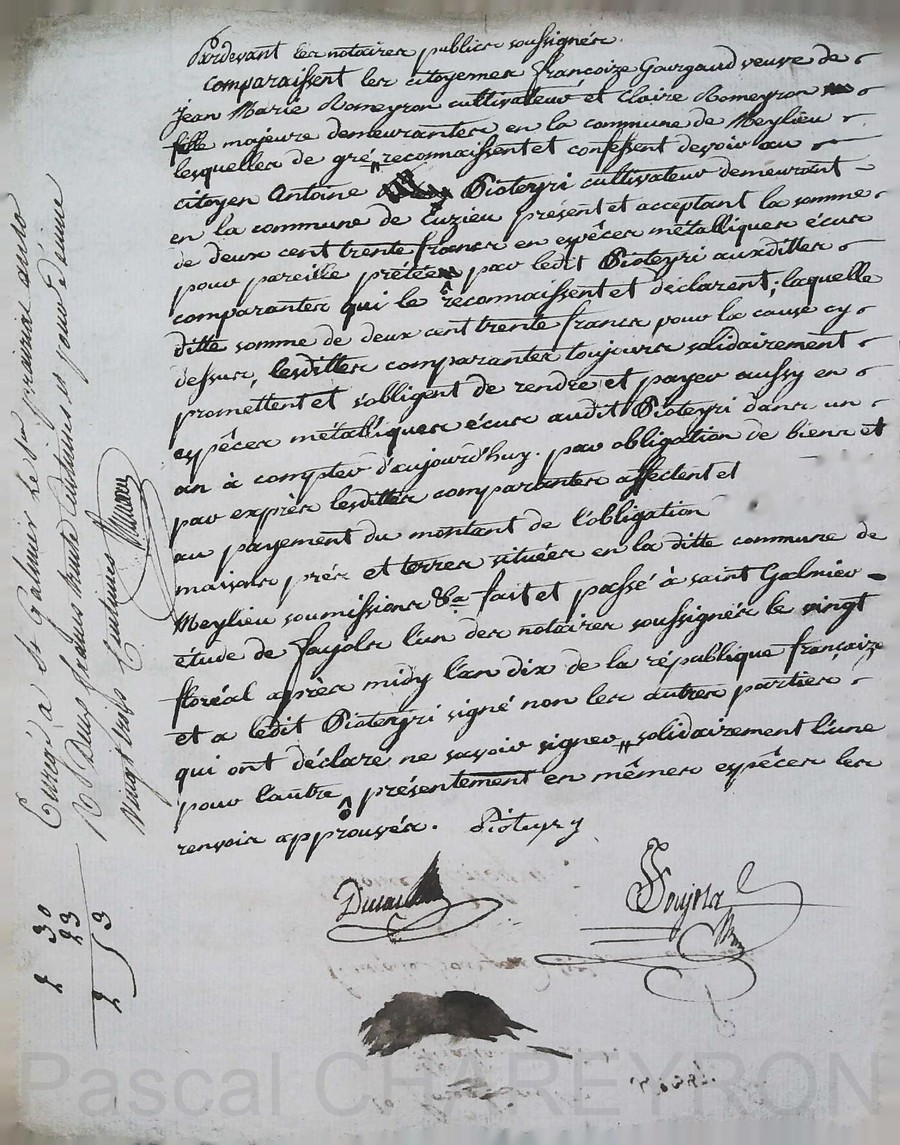 Pardevant les notaires publics soussignés.
comparaissent les citoyenes françoize Gourgaud veuve de
jean Marie Romeyron cultivateur et Claire Romeyron
fille majeure demeurantes en la commune de Meylieu
lesquelles de gré " reconnaissent et confessent devoir au
citoyen Antoine Pioteyri cultivateur demeurant
en la commune de Cuzieu présent et acceptant la somme
de deux cent trente francs en espêces métalliques écus
pour pareille prétée par ledit Pioteyri auxdittes
comparantes qui le reconnaissent et déclarent ; laquelle
ditte somme de deux cent trente francs pour la cause cy
dessus, lesdittes comparantes toujours solidairement
promettent et s'obligent de rendre et payer aussy en
espêces métalliques écus audit Pioteyri dans un
an à compter d'aujourd'huy. par obligation de biens et
par exprès lesdittes comparantes affectent et
au payement du montant de l'obligation
maisons prés et terres situées en la ditte commune de
Meylieu soumissions &a fait et passé à saint Galmier
étude de fayols l'un des notaires soussignés le vingt
floréal après midy l'an dix de la république françoize
et a ledit Pioteyri signé non les autres parties
qui ont déclaré ne savoir signer " solidairement l'une
pour l'autre ô présentement en mêmes espêces les
renvois approuvés. Pioteyry
fayols
Enrgé a St Galmier le prairial an dix
R Deux francs trente centimes et pour dixme
vingt trois Centimes
2 30
23
2 53
Pascal CHAREYRON